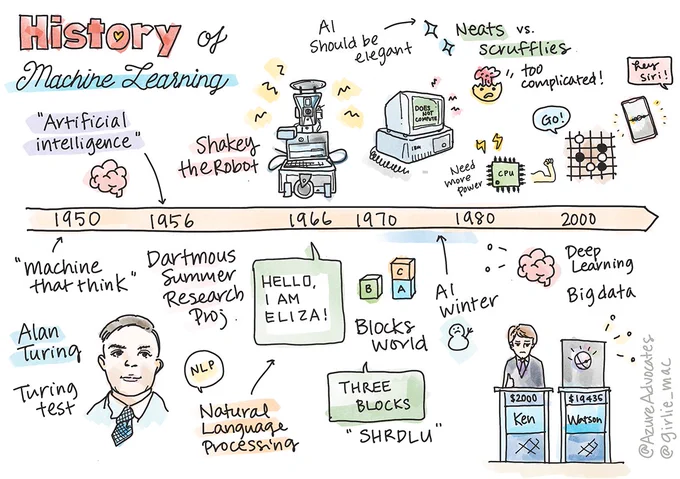 History of
Machine Learning
"Artificial
intelligence"
Shakey
the Robot
AI
should be
elegant
DOES
NOT
COMPUTE
IBM
Neats vs.
scrufflies
too
complicated!
Need
more
power
CPU
GO!
hey
Siri!
1950 1956 1966 1970 1980 2000
"machine
that think"
Alan
Turing
Turing
test
Dartmous
Summer
Research
Proj.
NLP
Natural
Language
Processing
HELLO,
I AM
ELIZA!
B
C
A
Blocks
world
THREE
BLOCKS
"SHRDLU"
AI
Winter
Deep
Learning
Big data
$2000
Ken
$19435
Watson
@AzureAdvocates
@girlie_mac